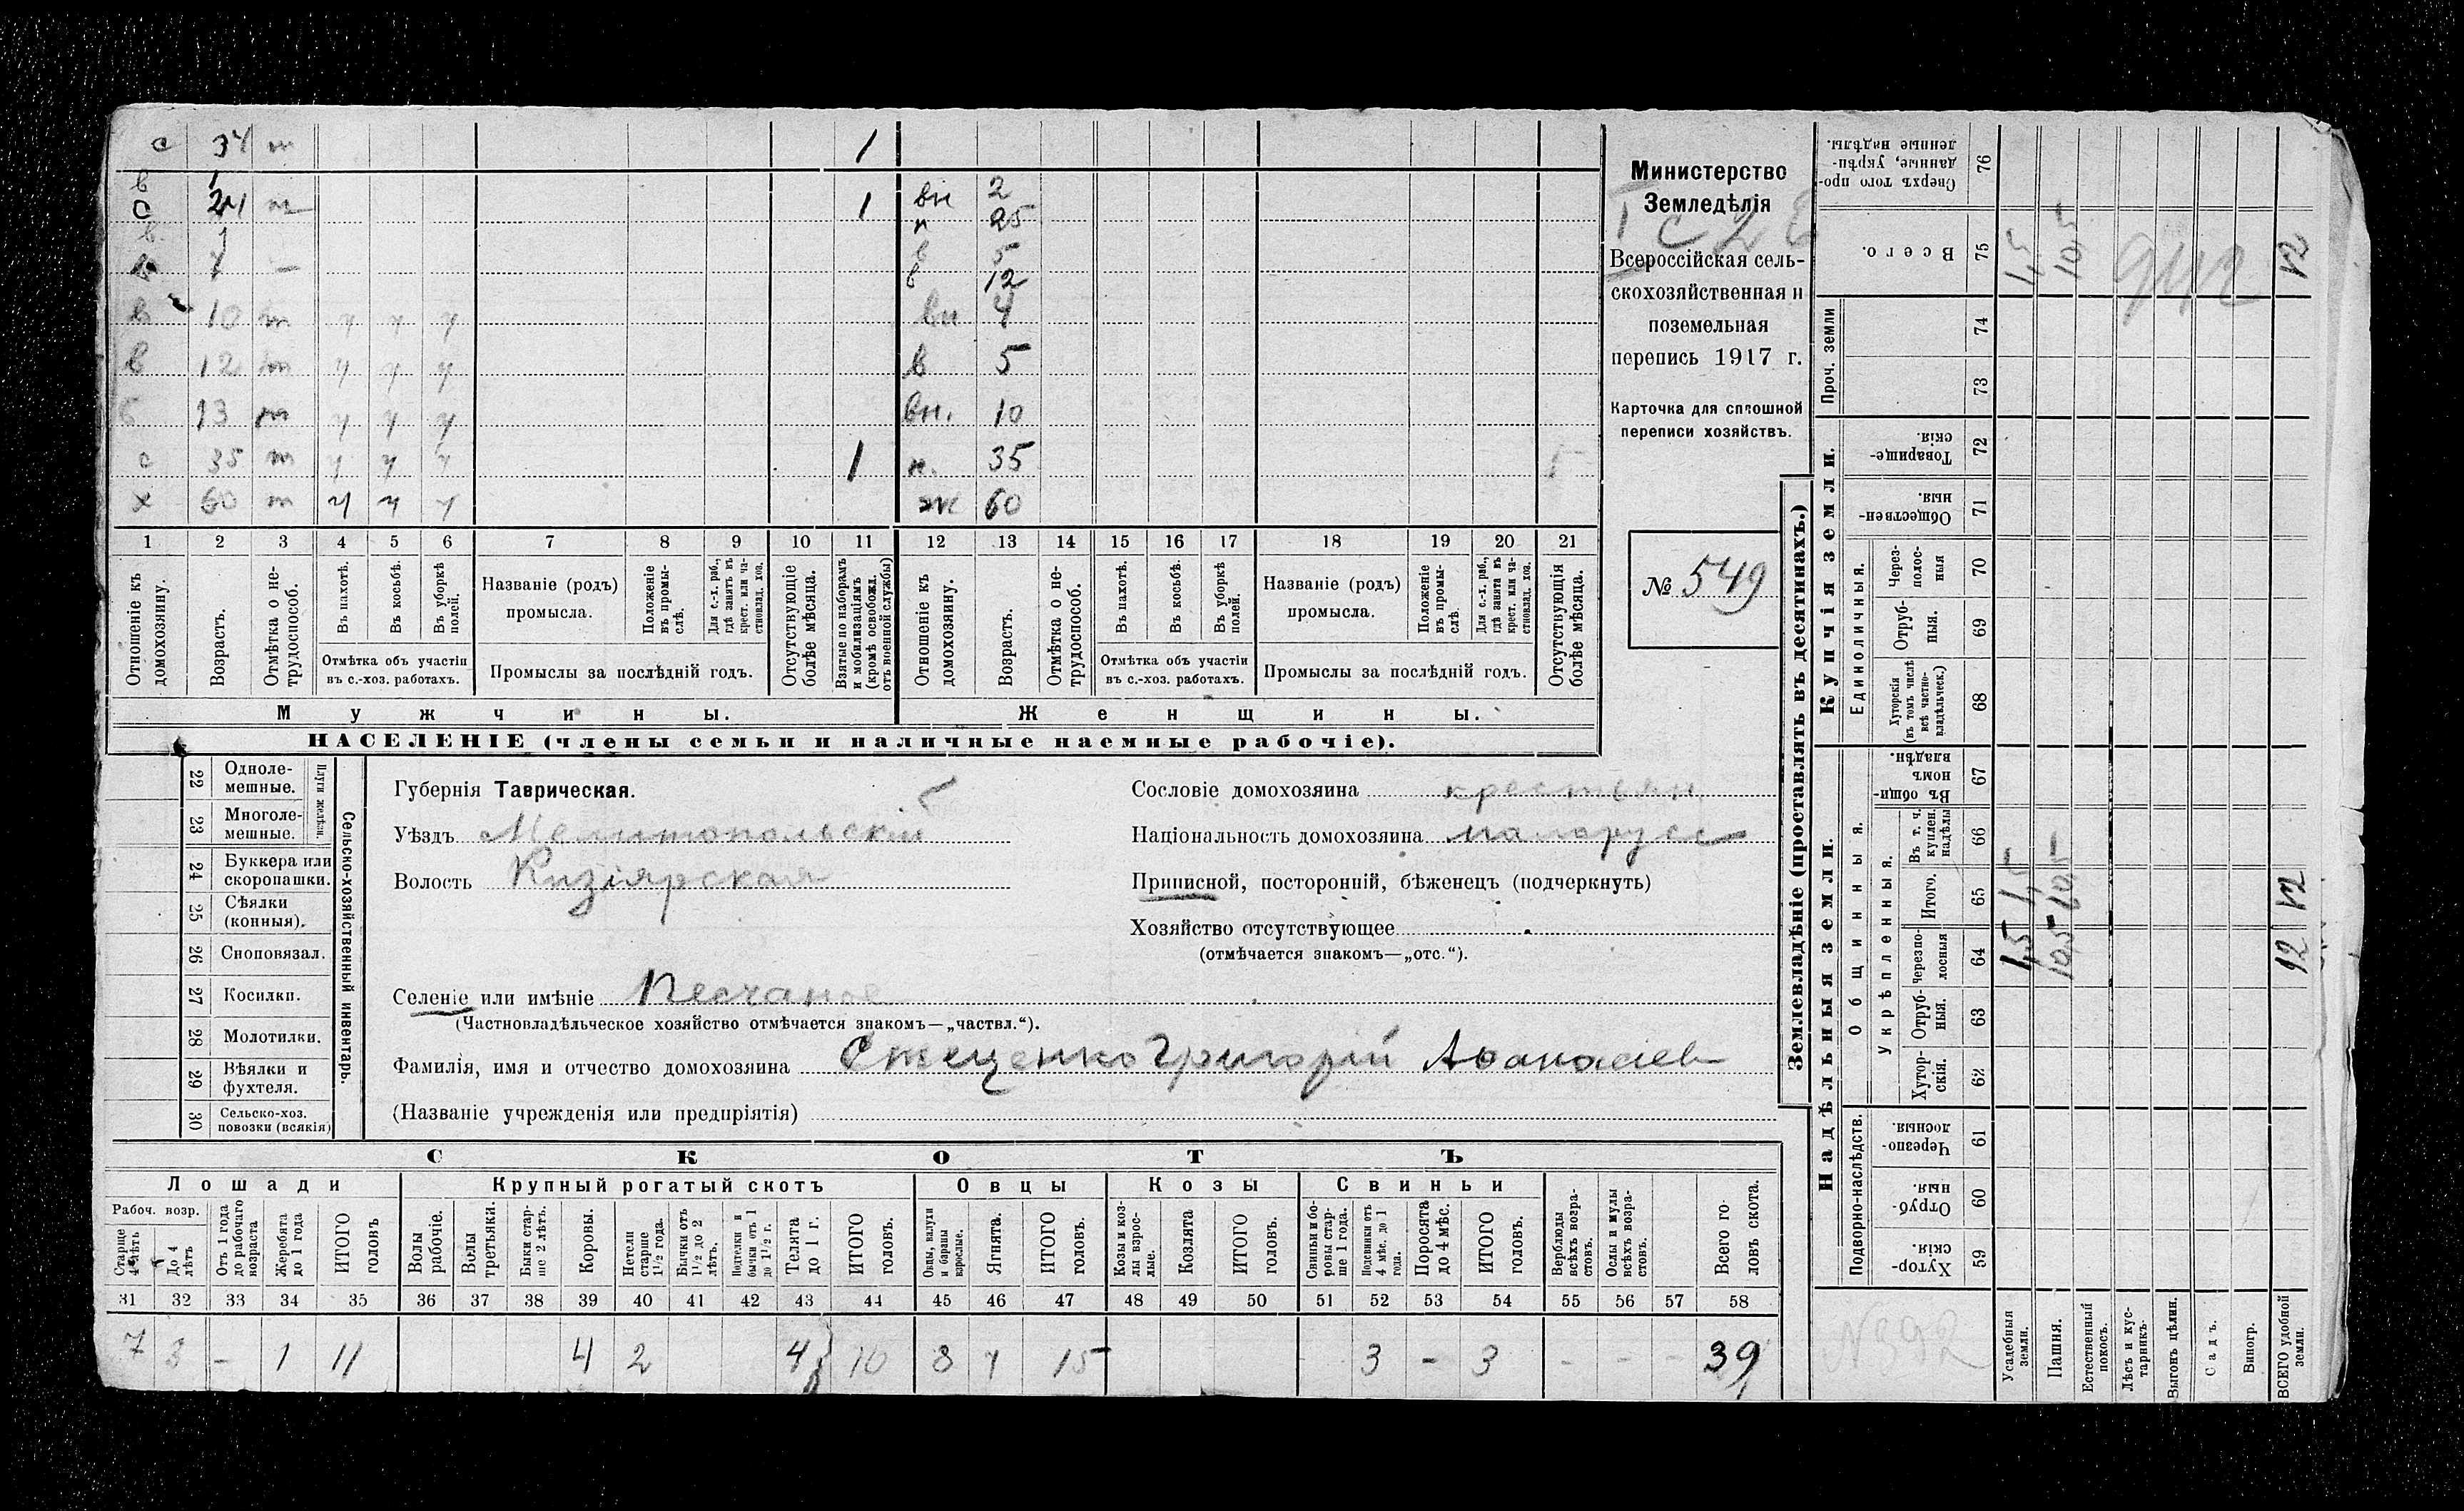 с 34 т 1
в 1
с 24 т 1 вн 2
в. 1 н 25
в 5
7 — в 12
в 10 т ч ч ч вн 4
в 12 т ч ч ч в 5
13 т ч ч ч вн. 10
с 35 т ч ч ч 1 н. 35
х 60 т ч ч ч ж 60
1 2 3 4 5 6 7 8 9 10 11 12 13 14 15 16 17 18 19 20 21
Отношеніе къ домохозяину.
Возрастъ.
Отмѣтка о не-трудоспособ.
Въ пахотѣ.
Въ косьбѣ.
Въ уборкѣ полей.
Отмѣтка объ участіи въ с.-хоз. работахъ.
Названіе (родъ) промысла.
Положеніе въ промы-слѣ.
Для с.-х. раб., гдѣ занятъ въ крест. или ча-стновлад. хоз.
Промыслы за послѣдній годъ.
Отсутствующіе болѣе мѣсяца.
Взятые по наборамъ и мобилизаціямъ (кромѣ освобожд. отъ военной службы)
Отношеніе къ домохозяину.
Возрастъ.
Отмѣтка о не-трудоспособ.
Въ пахотѣ.
Въ косьбѣ.
Въ уборкѣ полей.
Отмѣтка объ участіи въ с.-хоз. работахъ.
Названіе (родъ) промысла.
Положеніе въ промы-слѣ.
Для с.-х. раб., гдѣ занята въ крест. или ча-стновлад. хоз.
Промыслы за послѣдній годъ.
Отсутствующія болѣе мѣсяца.
Мужчины.
Женщины.
НАСЕЛЕНІЕ (члены семьи и наличные наемные рабочіе).
Министерство
Земледѣлія
Всероссійская сель-
скохозяйственная и
поземельная
перепись 1917 г.
Карточка для сплошной
переписи хозяйствъ.
№ 549
22 Одноле-мешные.
23 Многоле-мешные.
Плуги желѣзн.
24 Буккера или скоропашки.
25 Сѣялки (конныя).
26 Сноповязал.
27 Косилки.
28 Молотилки.
29 Вѣялки и фухтеля.
30 Сельско-хоз. повозки (всякія)
Сельско-хозяйственный инвентарь.
Губернія Таврическая.
Уѣздъ Мелитопольскій
Волость Кизіярская
Селеніе или имѣніе Песчаное
(Частновладѣльческое хозяйство отмѣчается знакомъ—„частвл.“).
Фамилія, имя и отчество домохозяина Стеценко Григорій Аѳанасіев
(Названіе учрежденія или предпріятія)
Сословіе домохозяина крестьян.
Національность домохозяина малорусс
Приписной, посторонній, бѣженецъ (подчеркнуть)
Хозяйство отсутствующее
(отмѣчается знакомъ—„отс.“).
СКОТЪ
Лошади Крупный рогатый скотъ Овцы Козы Свиньи
Рабоч. возр.
Старше 4 лѣтъ
До 4 лѣтъ
Отъ 1 года до рабочаго возраста
Жеребята до 1 года
ИТОГО головъ
Волы рабочіе.
Волы третьяки.
Быки стар-ше 2 лѣтъ.
Коровы.
Нетели старше 1½ года.
Бычки отъ 1½ до 2 лѣтъ.
Подтелки и бычки отъ 1 до 1½ г.
Телята до 1 г.
ИТОГО головъ.
Овцы, валухи и бараны взрослые.
Ягнята.
ИТОГО головъ.
Козы и коз-лы взрос-лые.
Козлята
ИТОГО головъ.
Свиньи и бо-ровы стар-ше 1 года.
Подсвинки отъ 4 мѣс. до 1 года.
Поросята до 4 мѣс.
ИТОГО головъ.
Верблюды всѣхъ возра-стовъ.
Ослы и мулы всѣхъ возра-стовъ.
Всего го-ловъ скота.
31 32 33 34 35 36 37 38 39 40 41 42 43 44 45 46 47 48 49 50 51 52 53 54 55 56 57 58
7 3 – 1 11 4 2 4 10 8 7 15 3 – 3 – – – 39
Землевладѣніе (проставлять въ десятинахъ.)
Надѣльныя земли.
Купчія земли.
Проч. земли
Подворно-наслѣдств.
Общинныя.
Укрѣпленныя.
Единоличныя.
Сверхъ того про-данные, укрѣп-ленные надѣлы. 76
Всего. 75 1,5 10,5 12
74
73
Товарище-скія. 72
Обществен-ныя. 71
Через-полос-ныя 70
Отруб-ныя. 69
Хуторскія (въ томъ числѣ всѣ частно-владѣльческ.) 68
Въ общи-номъ владѣн. 67
Въ т. ч. куплен. надѣлы 66
Итого. 65 1,5 10,5 12
Черезпо-лосныя 64 1,5 10,5 12
Отруб-ныя. 63
Хутор-скія. 62
Черезпо-лосныя 61
Отруб-ныя. 60
Хутор-скія. 59
Усадебныя земли.
Пашня.
Естественный покосъ.
Лѣсъ и кус-тарникъ.
Выгонъ цѣлин.
Садъ.
Виногр.
ВСЕГО удобной земли.